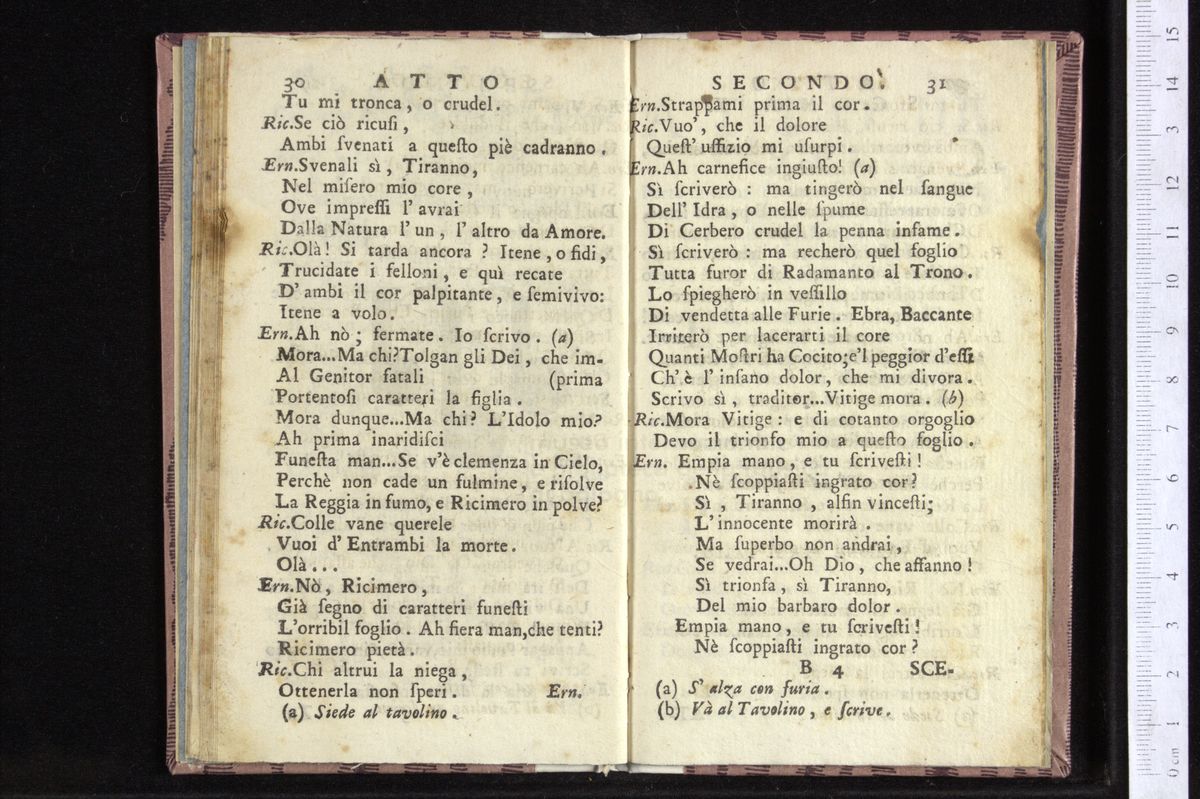 30 ATTO
Tu mi tronca, o crudel.
Ric.Se ciò ricuſi,
Ambi ſvenati a queſto piè cadranno.
Ern.Svenali sì, Tiranno,
Nel miſero mio core,
Ove impreſſi l'avrai
Dalla Natura l'un, l'altro da Amore.
Ric.Olà! Si tarda ancora? Itene, o fidi,
Trucidate i felloni, e quì recate
D'ambi il cor palpitante, e ſemivivo:
Itene a volo.
Ern.Ah nò; fermate. Io ſcrivo. (a)
Mora...Ma chi?Tolgan gli Dei, che im-
Al Genitor fatali (prima
Portentoſi caratteri la figlia.
Mora dunque...Ma chi? L'Idolo mio?
Ah prima inaridiſci
Funeſta man...Se v'è clemenza in Cielo,
Perchè non cade un fulmine, e riſolve
La Reggia in fumo, e Ricimero in polve?
Ric.Colle vane querele
Vuoi d'Entrambi la morte.
Olà...
Ern.Nò, Ricimero,
Già ſegno di caratteri funeſti
L'orribil foglio. Ah fiera man,che tenti?
Ricimero pietà.
Ric.Chi altrui la niega,
Ottenerla non ſperi. Ern.
(a) Siede al tavolino.
SECONDO. 31
Ern.Strappami prima il cor.
Ric.Vuo', che il dolore
Queſt' uffizio mi uſurpi.
Ern.Ah carnefice ingiuſto! (a)
Sì ſcriverò: ma tingerò nel ſangue
Dell'Idra, o nelle ſpume
Di Cerbero crudel la penna infame.
Sì ſcriverò: ma recherò quel foglio
Tutta furor di Radamanto al Trono.
Lo ſpiegherò in veſſillo
Di vendetta alle Furie. Ebra, Baccante
Irriterò per lacerarti il core
Quanti Moſtri ha Cocito;e'l peggior d'eſſi
Ch'è l'inſano dolor, che mi divora.
Scrivo sì, traditor...Vitige mora. (b)
Ric.Mora Vitige: e di cotanto orgoglio
Devo il trionfo mio a queſto foglio.
Ern. Empia mano, e tu ſcriveſti!
Nè ſcoppiaſti ingrato cor?
Sì, Tiranno, alfin vinceſti;
L'innocente morirà.
Ma ſuperbo non andrai,
Se vedrai...Oh Dio, che affanno!
Sì trionfa, sì Tiranno,
Del mio barbaro dolor.
Empia mano, e tu ſcriveſti!
Nè ſcoppiaſti ingrato cor?
B 4 SCE-
(a) S'alza con furia.
(b) Và al Tavolino, e ſcrive.
0 cm 1 2 3 4 5 6 7 8 9 10 11 12 13 14 15